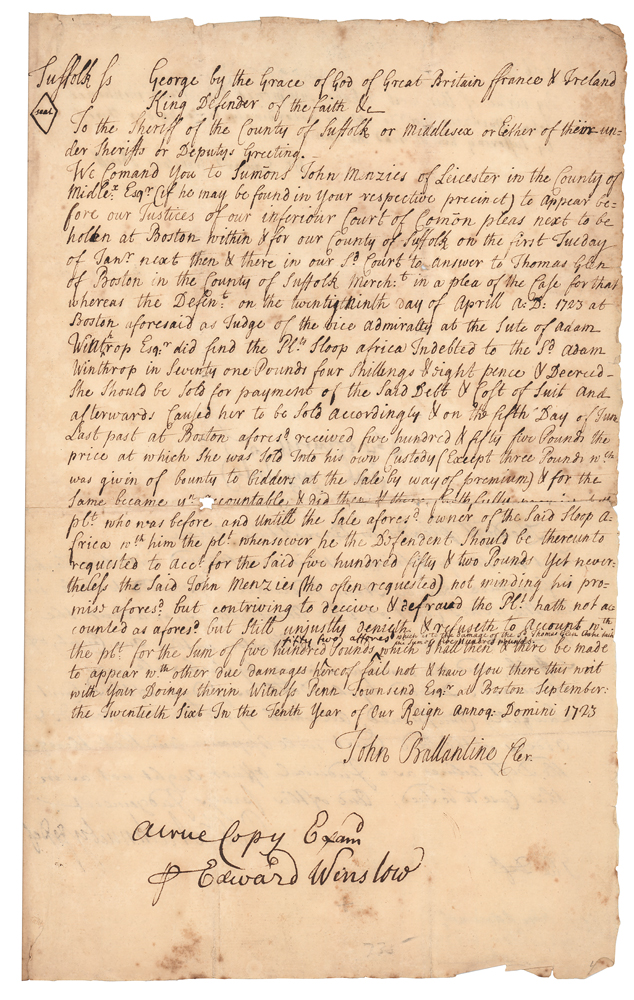 Suffolk ss George by the Grace of God of Great Britain ffrance & Ireland
seal King Defender of the faith &c
To the Sheriff of the County of Suffolk or Middlesex or Either of their un-
der Sheriffs or Deputys Greeting.
We Comand You to Sumons John Menzies of Leicester in the County of
Middlex Esqr (if he may be found in Your respective precinct) to appear be-
fore our Justices of our inferiour Court of Comon pleas next to be
holden at Boston within & for our County of Suffolk on the first Tuesday
of Janr next then & there in our Sd Court to answer to Thomas Glen
of Boston in the County of Suffolk Mercht in a plea of the Case for that
whereas the Defendt on the twenty ninth day of Aprill A: D: 1723 at
Boston aforesaid as Judge of the vice admiralty at the Sute of Adam
Winthrop Esqr did find the Pltts Sloop africa Indebted to the Sd Adam
Winthrop in Seventy one Pounds four Shillings & Eight pence & Decreed
She Should be Sold for payment of the Said Debt & Cost of Suit And
afterwards Caused her to be Sold accordingly & on the fifth Day of June
Last past at Boston aforesd received five hundred & fifty five Pounds the
price at which She was Sold Into his own Custody (Except three Pounds wch
was given of bounty to bidders at the Sale by way of premium) & for the
Same became accountable & did then & there
plt who was before and Untill the Sale aforesd owner of the Said Sloop A-
frica wth him the plt whensoever he the Defendent Should be thereunto
requested to Acct for the Said five hundred fifty & two Pounds Yet never-
theless the Said John Menzies (tho often requested) not minding his pro-
miss aforesd but contriving to deceive & defraud the Plt hath not ac
counted as aforesd but Still unjustly denieth & refuseth to account wth
fifty two afforesd which is to the damage of the Sd Thomas Glen
the Sum of five hundred Pounds
the plt for the Sum of five hundred Pounds which Shall then & there be made
to appear wth other due damages hereof fail not & have You there this writ
with Your Doings therin Witness Penn Townsend Esqr at Boston September:
the Twentieth Sixt In the Tenth Year of Our Reign Annoq: Domini 1723
John Ballantine Cler.
A true Copy Examd
Edward Winslow